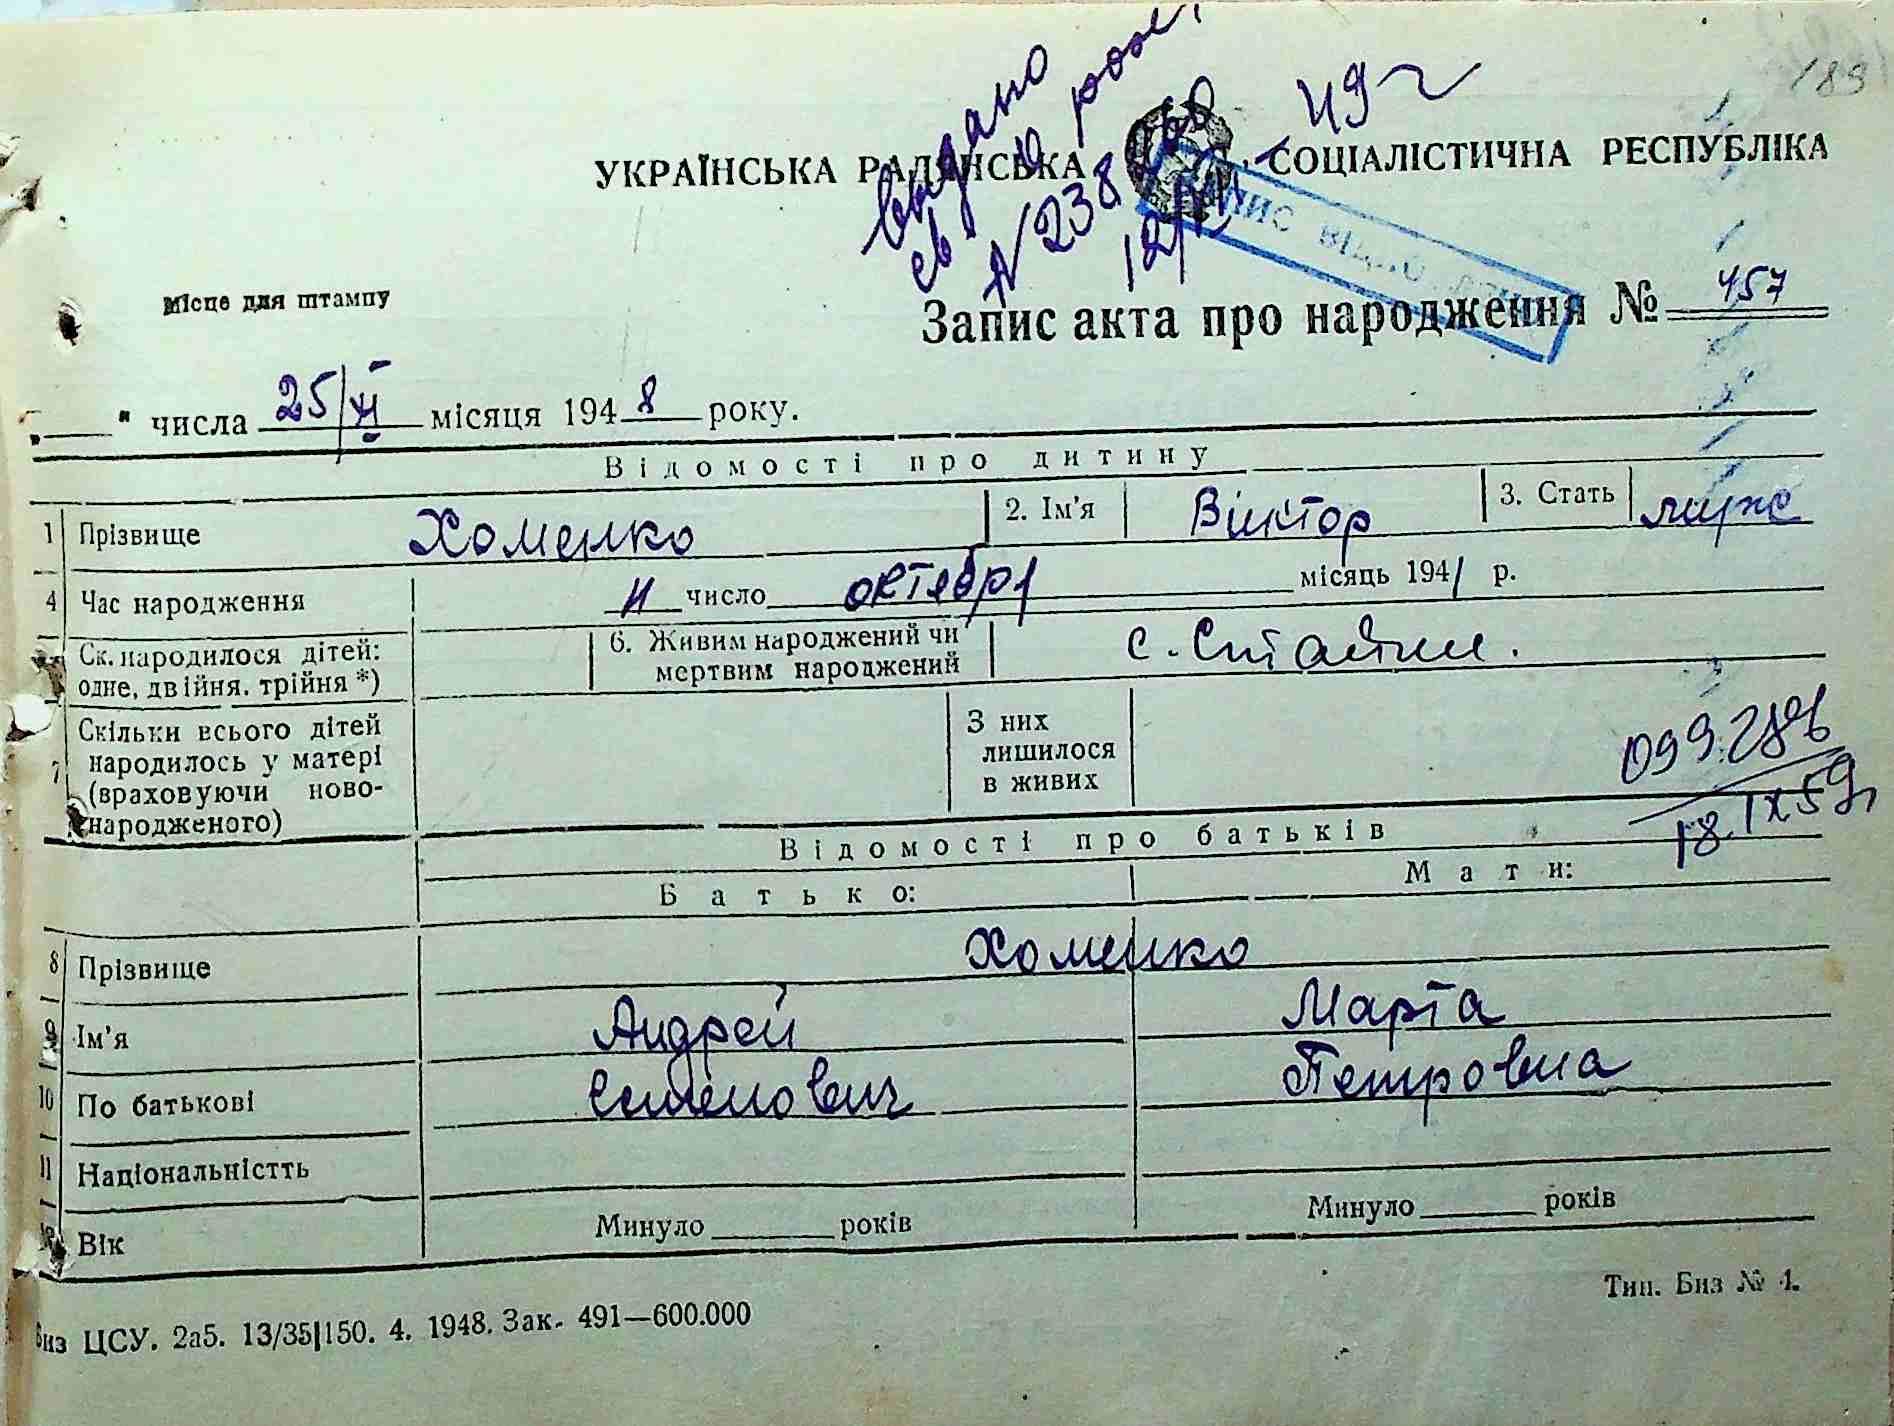 189
видано
св. о рожд.
№ 238260
12/VII-49 г
УКРАЇНСЬКА РАДЯНСЬКА СОЦІАЛІСТИЧНА РЕСПУБЛІКА
ЗАПИС ВІДНО
Місце для штампу
Запис акта про народження № 457
„ " числа 25/XI місяця 1948 року.
Відомості про дитину
1 Прізвище Хоменко 2. Ім'я Віктор 3. Стать муж
4 Час народження 11 число октября місяць 1941 р.
Ск. народилося дітей: 6. Живим народжений чи
одне, двійня, трійня *) мертвим народжений с.
Скільки всього дітей З них
7 народилось у матері лишилося
(враховуючи ново- в живих
народженого)
099286
18.IX59г
Відомості про батьків
Батько: Мати:
8 Прізвище Хоменко
9 Ім'я Андрей Марта
10 По батькові Семенович Петровна
11 Національністть
Вік Минуло ___ років Минуло ___ років
Виз ЦСУ. 2а5. 13/35|150. 4. 1948. Зак. 491—600.000
Тип. Биз № 1.